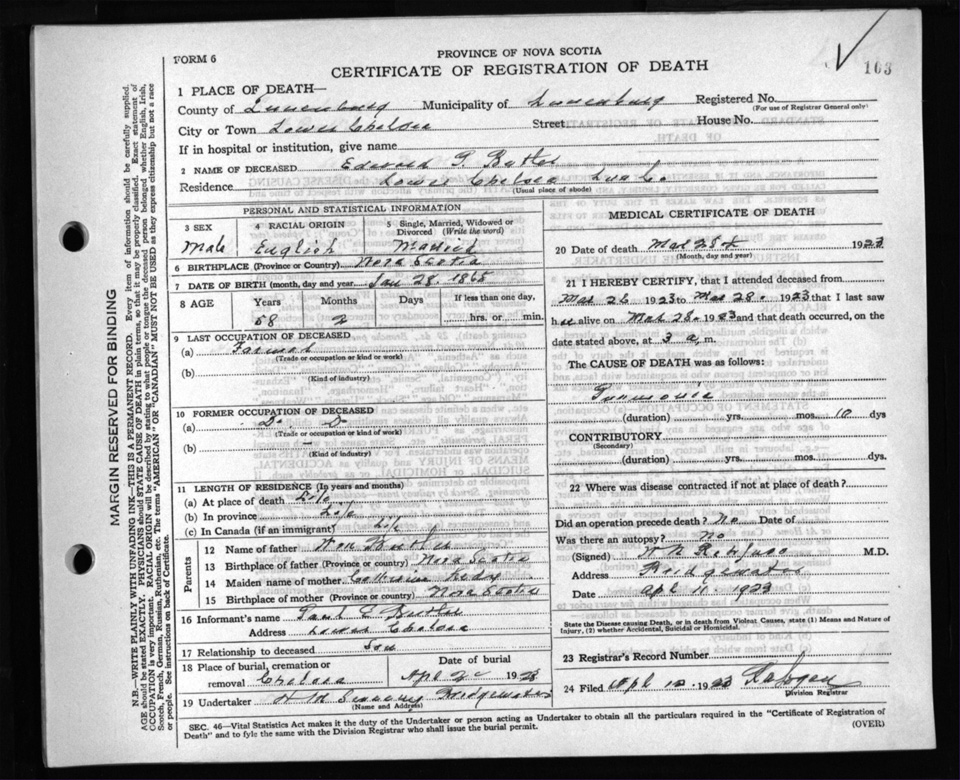 103
FORM 6
PROVINCE OF NOVA SCOTIA
CERTIFICATE OF REGISTRATION OF DEATH
1 PLACE OF DEATH—
County of Lunenburg Municipality of Lunenburg Registered No.
(For use of Registrar General only)
City or Town Lower Chelsea Street House No.
If in hospital or institution, give name
2 NAME OF DECEASED Edward Butler
Residence Lower Chelsea Lun Co
(Usual place of abode)
PERSONAL AND STATISTICAL INFORMATION
3 SEX 4 RACIAL ORIGIN 5 Single, Married, Widowed or Divorced (Write the word)
Male English Married
6 BIRTHPLACE (Province or Country) Nova Scotia
7 DATE OF BIRTH (month, day and year) Jan 28. 1865
8 AGE Years Months Days If less than one day,
58 2 hrs. or min.
9 LAST OCCUPATION OF DECEASED
(a) Farmer
(Trade or occupation or kind of work)
(b)
(Kind of industry)
10 FORMER OCCUPATION OF DECEASED
(a) Do. Do
(Trade or occupation or kind of work)
(b) –
(Kind of industry)
11 LENGTH OF RESIDENCE (In years and months)
(a) At place of death Life
(b) In province Life
(c) In Canada (if an immigrant) Life
Parents
12 Name of father Wm Butler
13 Birthplace of father (Province or country) Nova Scotia
14 Maiden name of mother Catherine
15 Birthplace of mother (Province or country) Nova Scotia
16 Informant's name Paul E Butler
Address Lower Chelsea
17 Relationship to deceased Son
18 Place of burial, cremation or removal Chelsea
Date of burial
Apl 2 1923
19 Undertaker Bridgewater
(Name and Address)
MEDICAL CERTIFICATE OF DEATH
20 Date of death Mar 28 1923
(Month, day and year)
21 I HEREBY CERTIFY, that I attended deceased from
Mar 26 1923 to Mar 28. 1923 that I last saw
h alive on Mar 28. 1923 and that death occurred, on the
date stated above, at 3 a m.
The CAUSE OF DEATH was as follows:
Pneumonia
(duration) yrs. mos. 10 dys
CONTRIBUTORY
(Secondary)
(duration) yrs. mos. dys.
22 Where was disease contracted if not at place of death?
Did an operation precede death? No Date of
Was there an autopsy? No
(Signed) M.D.
Address Bridgewater
Date Apl 11. 1923
State the Disease causing Death, or in death from Violent Causes, state (1) Means and Nature of
Injury, (2) whether Accidental, Suicidal or Homicidal.
23 Registrar's Record Number
24 Filed Apl 12 1923
Division Registrar
SEC. 46—Vital Statistics Act makes it the duty of the Undertaker or person acting as Undertaker to obtain all the particulars required in the "Certificate of Registration of
Death" and to fyle the same with the Division Registrar who shall issue the burial permit.
(OVER)
MARGIN RESERVED FOR BINDING
N.B.—WRITE PLAINLY WITH UNFADING INK—THIS IS A PERMANENT RECORD. Every item of information should be carefully supplied.
AGE should be stated EXACTLY. PHYSICIANS should STATE CAUSE OF DEATH in plain terms, so that it may be properly classified. Exact statement of
OCCUPATION is very important. RACIAL ORIGIN will be described by stating to what people or tongue the deceased person belonged whether English, Irish,
Scotch, French, German, Russian, Ruthenian, etc. The terms "AMERICAN" OR "CANADIAN" MUST NOT BE USED as they express citizenship but not a race
or people. See instructions on back of Certificate.